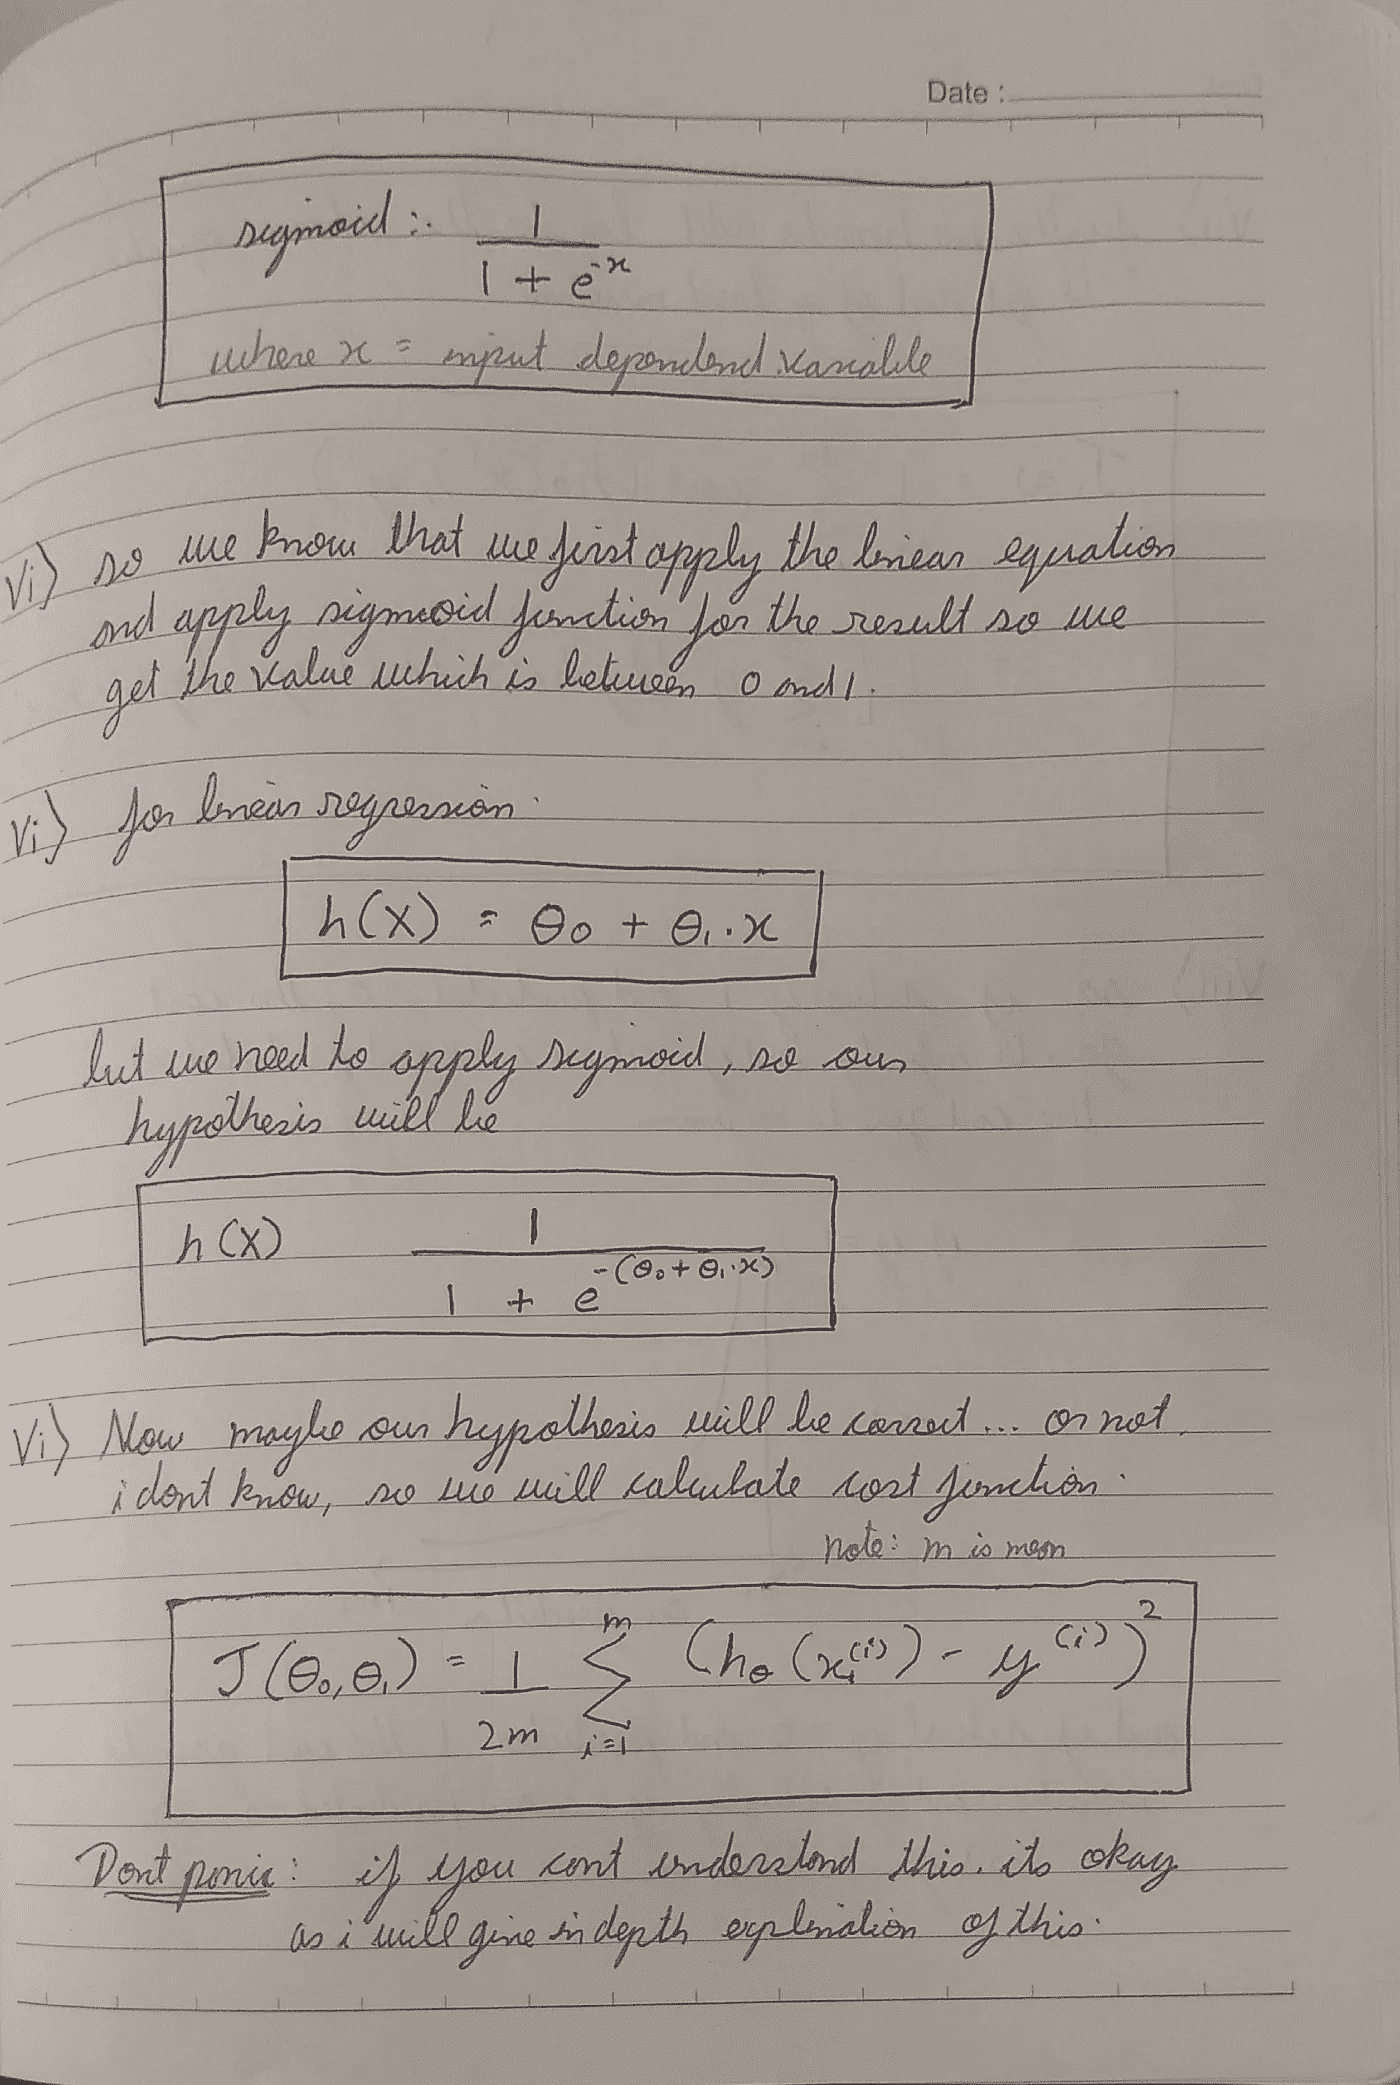 Date :
sigmoid :. 1 / 1 + e^-x
where x = input dependend variable
Vi) so we know that we first apply the linear equation
and apply sigmoid function for the result so we
get the value which is between 0 and 1.
Vi) for linear regression.
h(X) = θ₀ + θ₁.x
but we need to apply sigmoid, so our
hypothesis will be
h(X) 1 / 1 + e^-(θ₀+θ₁.x)
Vi) Now maybe our hypothesis will be correct... or not.
i dont know, so we will calculate cost function.
note: m is mean
J(θ₀,θ₁) = 1/2m Σ_{i=1}^{m} (h_θ(x^(i)) - y^(i))²
Dont panic: if you cant understand this. its okay
as i will give in depth explination of this.